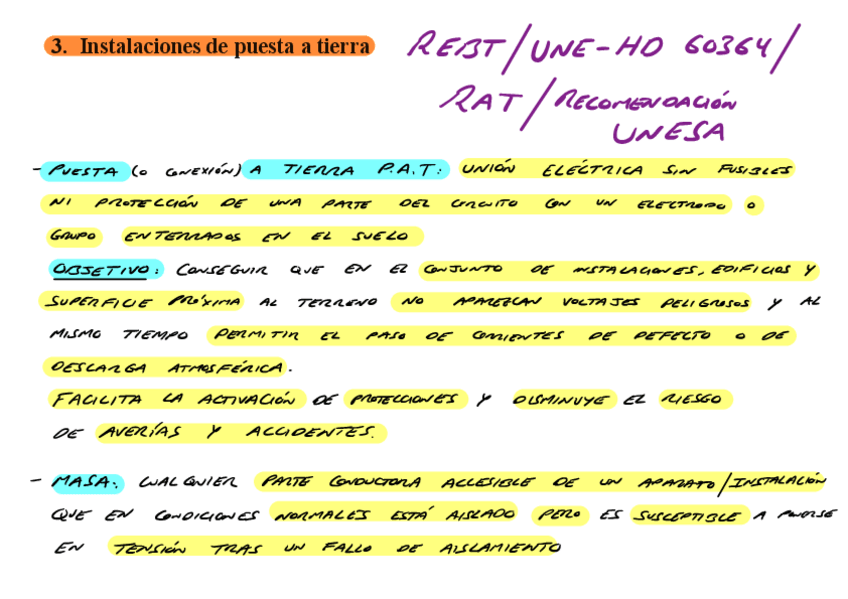 3. Instalaciones de puesta a tierra
REBT/UNE-HD 60364/
RAT/RECOMENDACIÓN
UNESA
- PUESTA (O CONEXIÓN) A TIERRA P.A.T: UNIÓN ELÉCTRICA SIN FUSIBLES
NI PROTECCIÓN DE UNA PARTE DEL CIRCUITO CON UN ELECTRODO O
GRUPO ENTERRADOS EN EL SUELO
OBJETIVO: CONSEGUIR QUE EN EL CONJUNTO DE INSTALACIONES, EDIFICIOS Y
SUPERFICIE PRÓXIMA AL TERRENO NO APAREZCAN VOLTAJES PELIGROSOS Y AL
MISMO TIEMPO PERMITIR EL PASO DE CORRIENTES DE DEFECTO O DE
DESCARGA ATMOSFÉRICA.
FACILITA LA ACTIVACIÓN DE PROTECCIONES Y DISMINUYE EL RIESGO
DE AVERÍAS Y ACCIDENTES.
- MASA: CUALQUIER PARTE CONDUCTORA ACCESIBLE DE UN APARATO/INSTALACIÓN
QUE EN CONDICIONES NORMALES ESTÁ AISLADO PERO ES SUSCEPTIBLE A PONERSE
EN TENSIÓN TRAS UN FALLO DE AISLAMIENTO